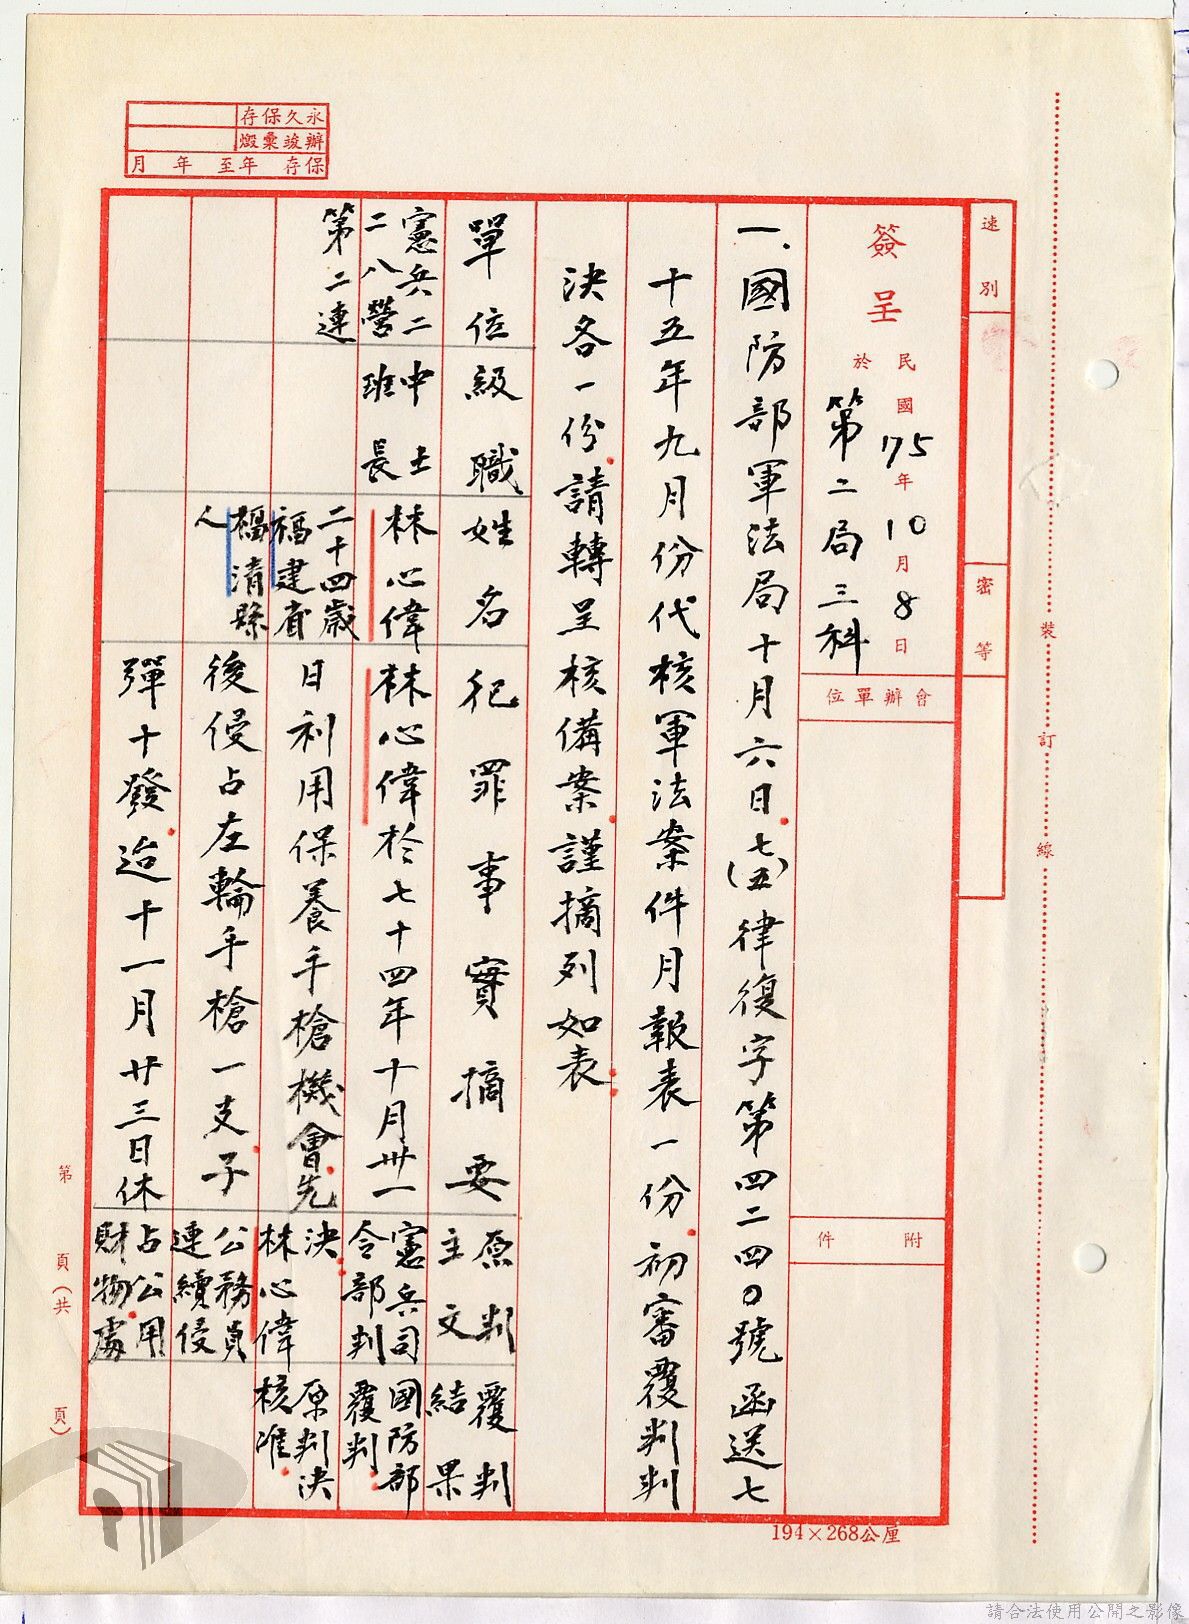 永久保存
辦竣彙燬
保存　年至　年　月
速別
密等
簽呈
民國75年10月8日
於第二局三科
會辦單位
附件
一、國防部軍法局十月六日七(五)律復字第四二四〇號函送七
十五年九月份代核軍法案件月報表一份初審覆判判
決各一份請轉呈核備案謹摘列如表
單位
級職
姓名
犯罪事實摘要
原判
主文
覆判
結果
憲兵二
二八營
第二連
中士
班長
林心偉
二十四歲
福建省
福清縣
人
林心偉於七十四年十月卅一
日利用保養手槍機會先
後侵占左輪手槍一支子
彈十發迨十一月廿三日休
憲兵司
令部判
決
林心偉
公務員
連續侵
占公用
財物處
國防部
覆判
原判決
核准
裝訂線
第　頁(共　頁)
194×268公厘
請合法使用公開之影像